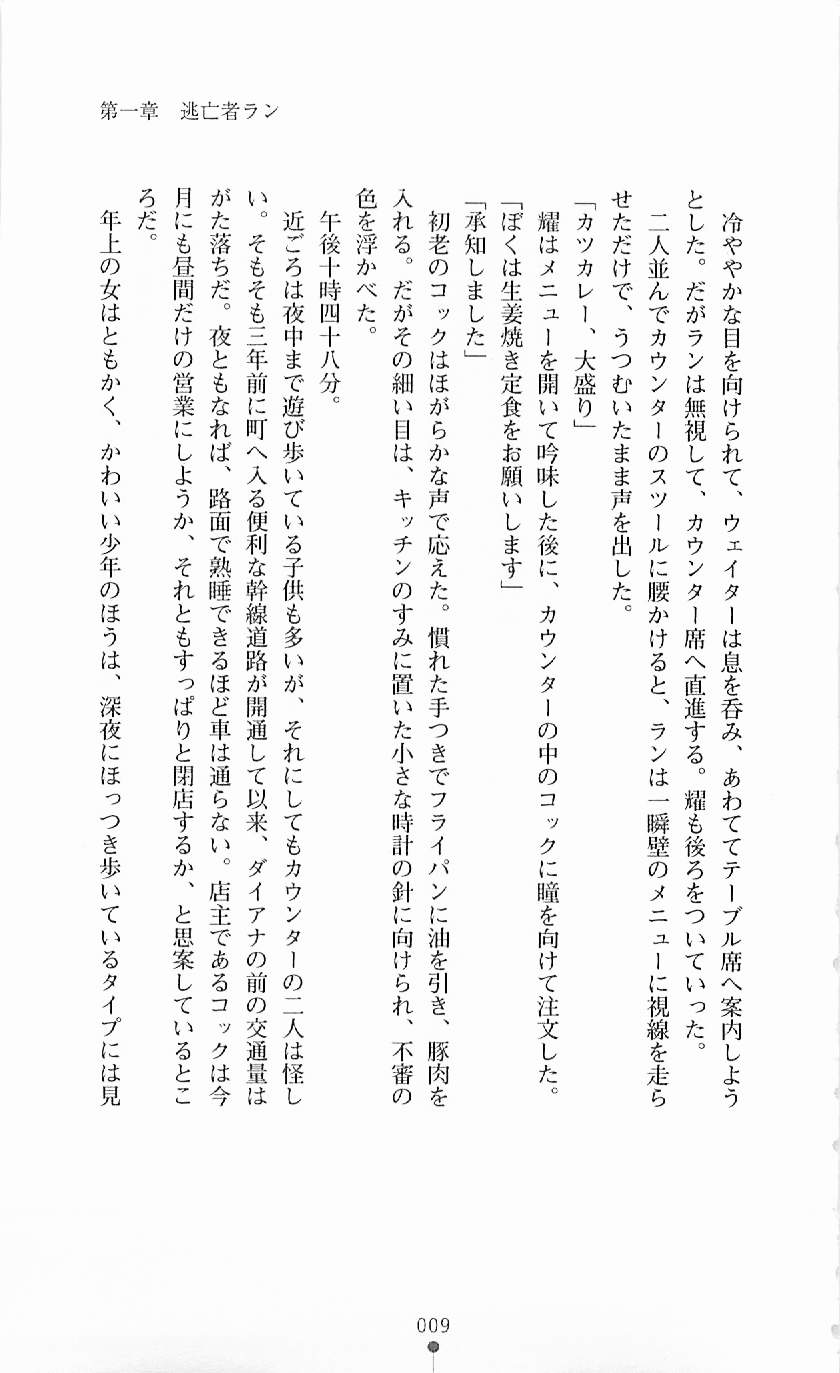 第一章　逃亡者ラン
　冷ややかな目を向けられて、ウェイターは息を呑み、あわててテーブル席へ案内しよう
とした。だがランは無視して、カウンター席へ直進する。耀も後ろをついていった。
　二人並んでカウンターのスツールに腰かけると、ランは一瞬壁のメニューに視線を走ら
せただけで、うつむいたまま声を出した。
「カツカレー、大盛り」
　耀はメニューを開いて吟味した後に、カウンターの中のコックに瞳を向けて注文した。
「ぼくは生姜焼き定食をお願いします」
「承知しました」
　初老のコックはほがらかな声で応えた。慣れた手つきでフライパンに油を引き、豚肉を
入れる。だがその細い目は、キッチンのすみに置いた小さな時計の針に向けられ、不審の
色を浮かべた。
　午後十時四十八分。
　近ごろは夜中まで遊び歩いている子供も多いが、それにしてもカウンターの二人は怪し
い。そもそも三年前に町へ入る便利な幹線道路が開通して以来、ダイアナの前の交通量は
がた落ちだ。夜ともなれば、路面で熟睡できるほど車は通らない。店主であるコックは今
月にも昼間だけの営業にしようか、それともすっぱりと閉店するか、と思案しているとこ
ろだ。
　年上の女はともかく、かわいい少年のほうは、深夜にほっつき歩いているタイプには見
009